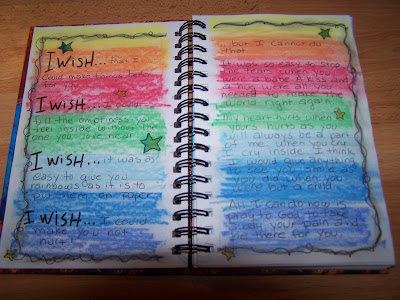 I WISH... that I
could make things better
for you.
I WISH... I could
fill the emptiness you
feel inside without the
one you love near
I WISH... it was as
easy to give you
rainbows as it is to
put them on paper
I WISH... I could
make you not
hurt!
...but I cannot do
that.
It was so easy to stop
the tears when you
were a babe. A kiss and
a hug were all you
world right again.
My heart hurts when
yours hurts as you
will always be a part
of me. When you cry,
I cry inside. I think
I would give anything
to see you smile as
you did when you
were but a child.
All I can do now is
pray to God to take
away your pain and
be there for you.